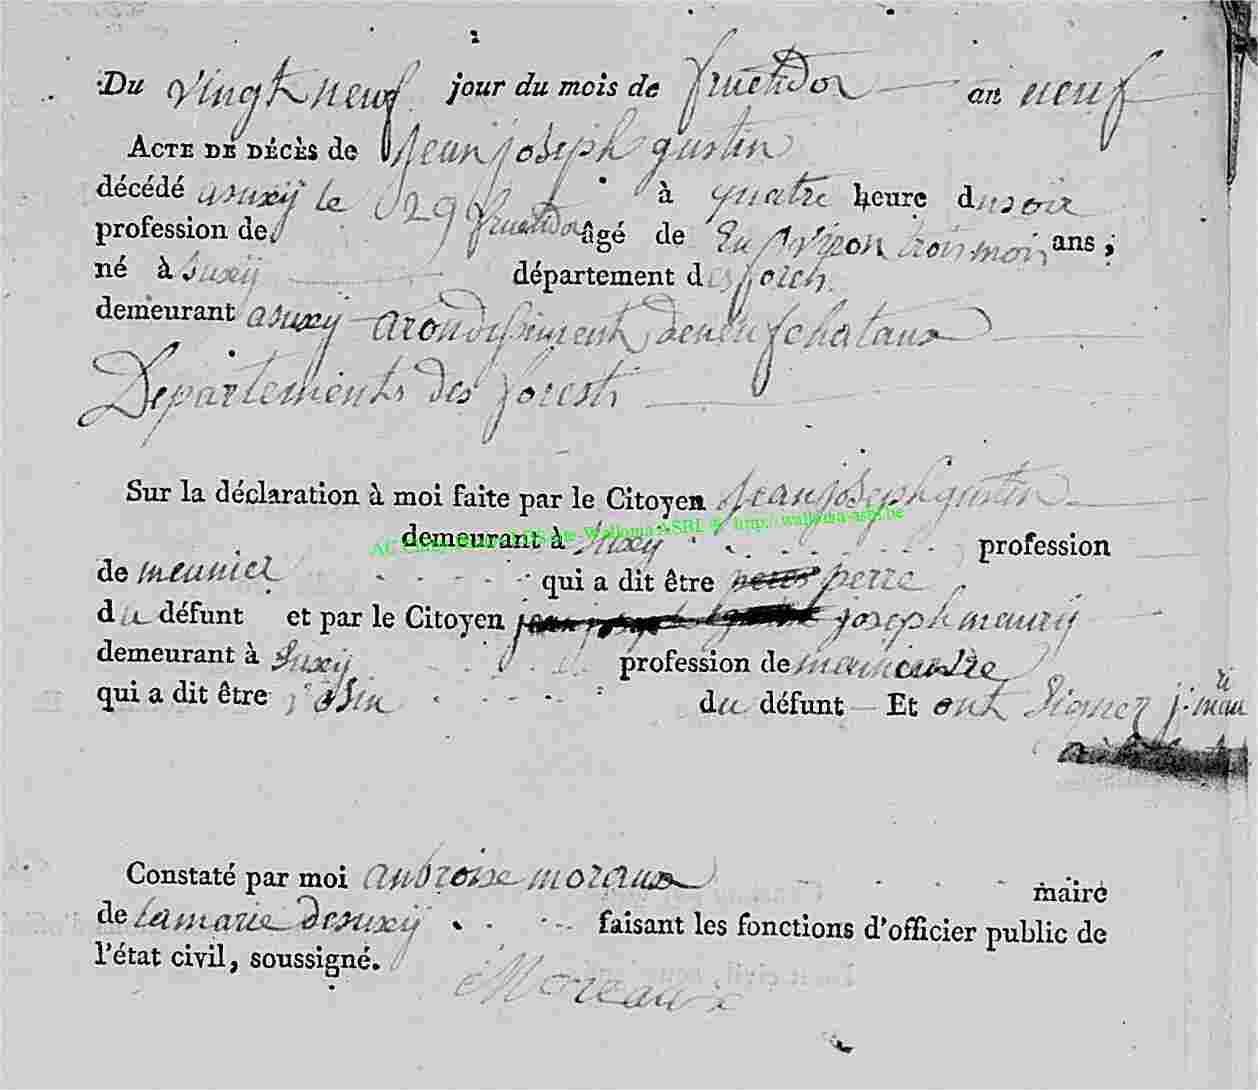 Du vingt neuf jour du mois de fructidor an neuf
ACTE DE DÉCÈS de Jean joseph gustin
décédé asuxÿ le 29 fructidor à quatre heure dusoir
profession de âgé de Environ trois mois ans;
né à Suxÿ département des forets
demeurant asuxÿ arondissiment deneufchataux
Departements des forests
Sur la déclaration à moi faite par le Citoyen Jean joseph gustin
demeurant à Suxÿ profession
de meunier qui a dit être perre
du défunt et par le Citoyen joseph maurÿ
demeurant à Suxÿ profession de
qui a dit être voisin du défunt Et ont Signez j. mauri
Constaté par moi anbroise moraux maire
de lamarie desuxÿ faisant les fonctions d'officier public de
l'état civil, soussigné.
Moreaux